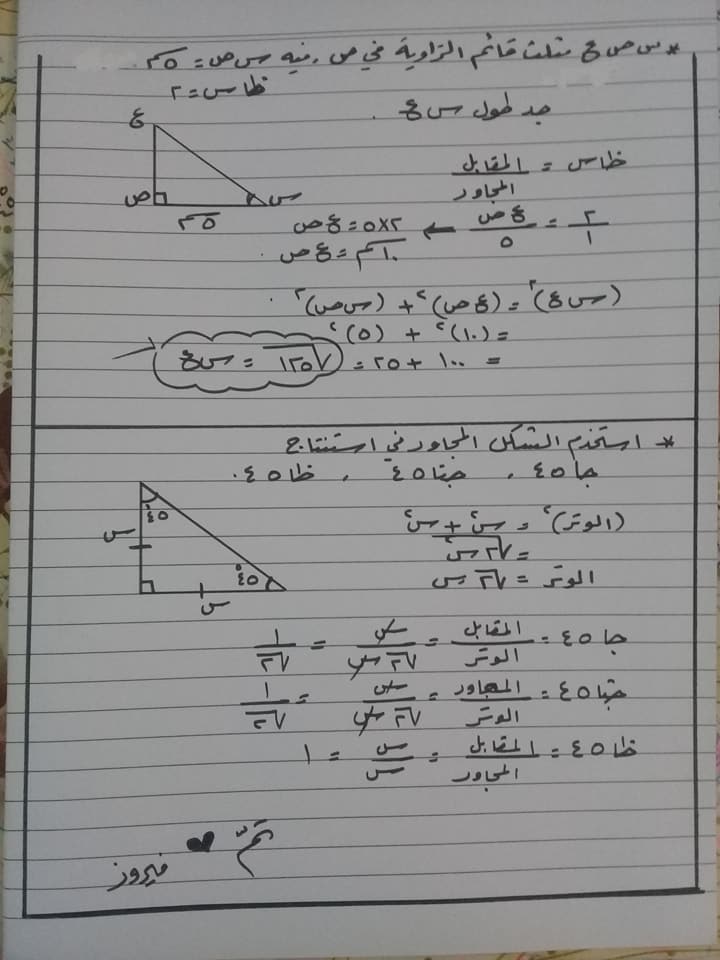 * س ص ع مثلث قائم الزاوية في ص ، فيه س ص = ٥سم
ظاس = ٢
جد طول س ع .
ع
ص
س
٥سم
ظاس = المقابل / المجاور
٢/١ = ع ص / ٥ ← ٢×٥ = ع ص
١٠سم = ع ص
(س ع)٢ = (ع ص)٢ + (س ص)٢
= (١٠)٢ + (٥)٢
= ١٠٠ + ٢٥ = √١٢٥ = س ع
* استخدم الشكل المجاور في استنتاج
جا٤٥ ، جتا٤٥ ، ظا٤٥ .
٤٥
س
٤٥°
س
(الوتر)٢ = س٢ + س٢
= √٢س٢
الوتر = √٢ س
جا٤٥ = المقابل / الوتر = س / √٢ س = ١ / √٢
جتا٤٥ = المجاور / الوتر = س / √٢ س = ١ / √٢
ظا٤٥ = المقابل / المجاور = س / س = ١
تمّ ♥ فيروز